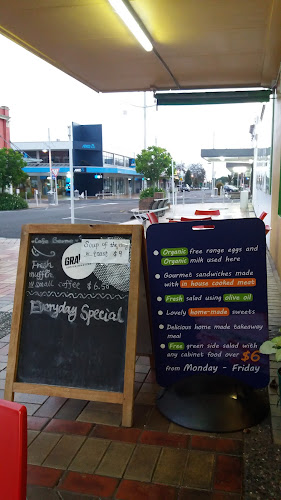 Soup of the
n toast $4
GRA
Fresh
muffin
small coffee $6.50
Everyday Special
Organic free range eggs and
Organic milk used here
Gourmet sandwiches made
with in house cooked meat
Fresh salad using olive oil
Lovely home-made sweets
Delicious home made takeaway
meal
Free green side salad with
any cabinet food over $6
from Monday - Friday